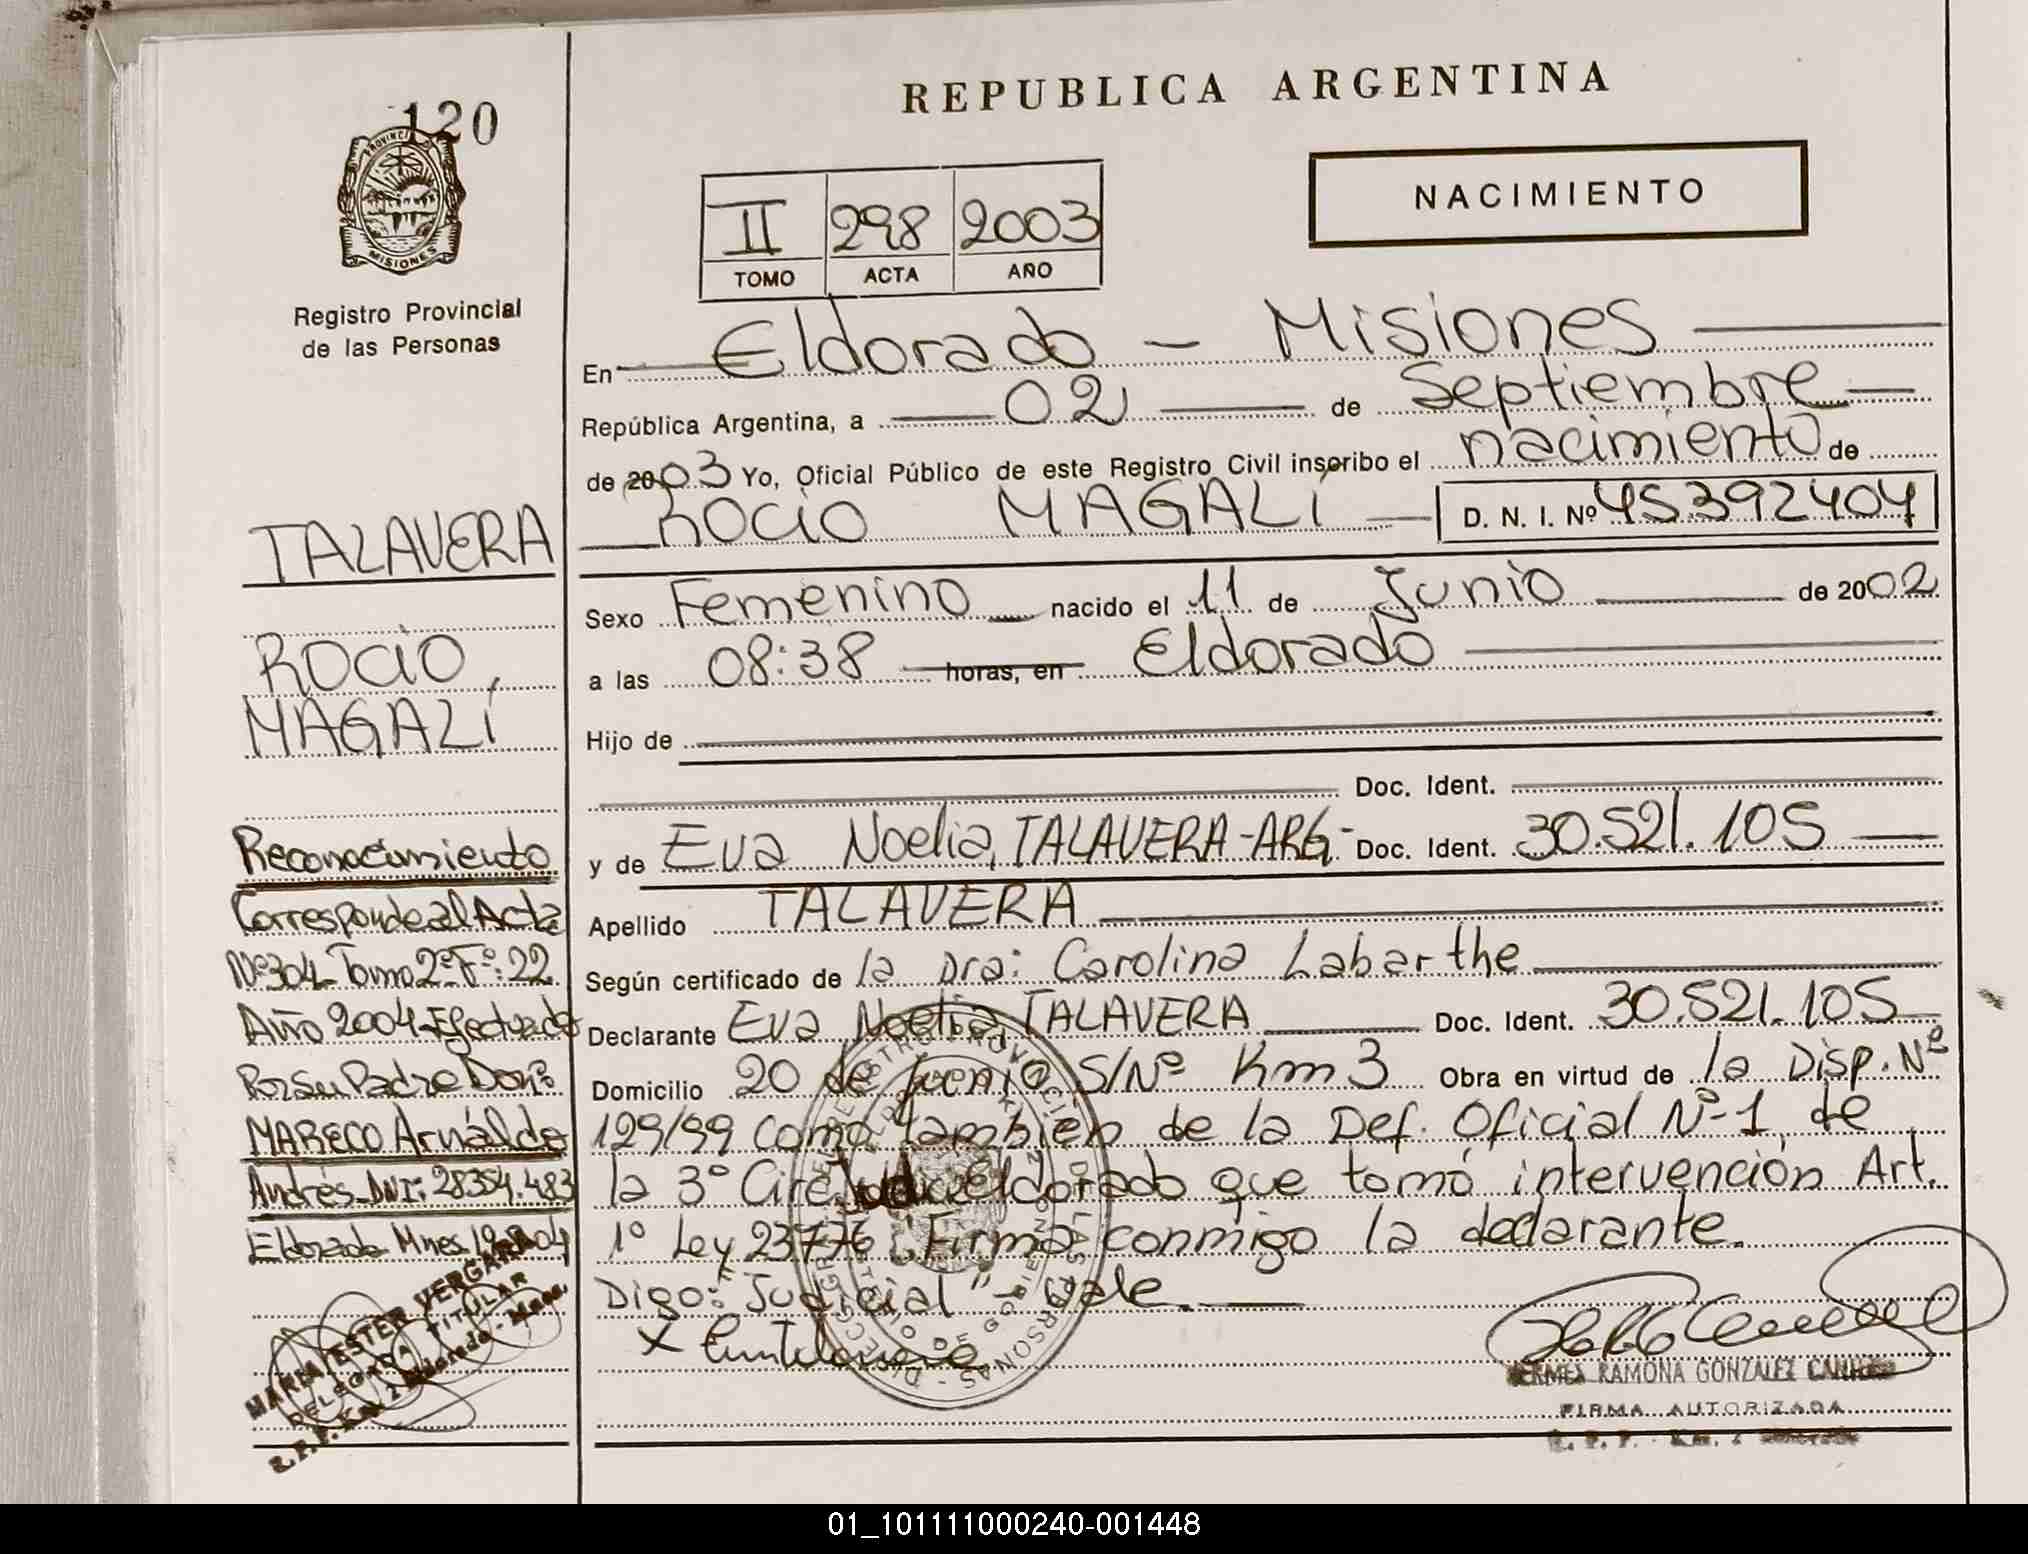 120
PROVINCIA
MISIONES
Registro Provincial
de las Personas
REPUBLICA ARGENTINA
NACIMIENTO
II 298 2003
TOMO ACTA AÑO
En Eldorado - Misiones
República Argentina, a 02 de Septiembre
de 2003 Yo, Oficial Público de este Registro Civil inscribo el nacimiento de
ROCIO MAGALÍ D. N. I. Nº 45.392404
Sexo Femenino nacido el 11 de Junio de 2002
a las 08:38 horas, en Eldorado
Hijo de
Doc. Ident.
y de Eva Noelia TALAVERA-ARG- Doc. Ident. 30.521.105
Apellido TALAVERA
Según certificado de la Dra: Carolina Labarthe
Declarante Eva Noelia TALAVERA Doc. Ident. 30.521.105
Domicilio 20 de Junio S/Nº Km 3 Obra en virtud de la Disp. Nº
129/99 como también de la Def. Oficial Nº-1 de
la 3º Circ. Eldorado que tomó intervención Art.
1º Ley 23776. Firma conmigo la declarante.
Digo: "Judicial" - Vale.
X
RAMONA GONZALEZ
FIRMA AUTORIZADA
TALAVERA
ROCIO
MAGALÍ
Reconocimiento
Corresponde al Acta
Nº304 Tomo 2º Fº: 22
Año 2004 Efectuado
Por su Padre Don:
MARECO Arnaldo
Andrés DNI: 28354.483
Eldorado Mnes 19
MARIA ESTER VERGARA
DELEGADA TITULAR
01_101111000240-001448